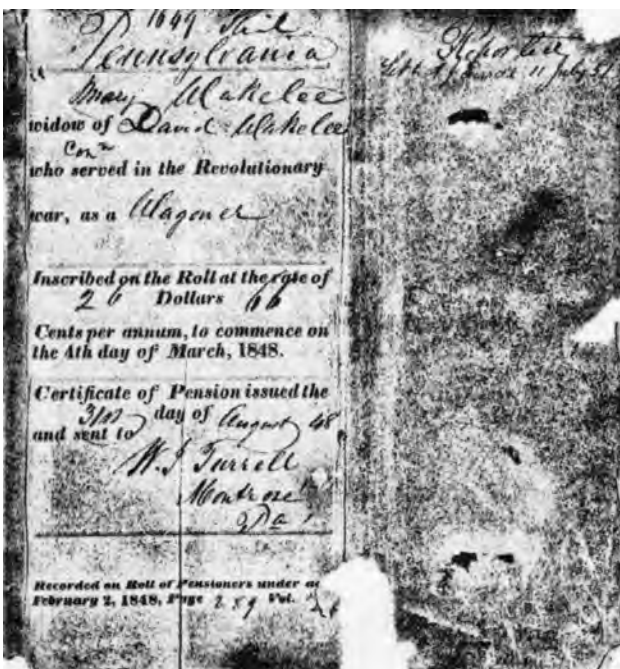 1649
Pennsylvania
Mary Wakelee
widow of David Wakelee
Conn
who served in the Revolutionary
war, as a Wagoner
Inscribed on the Roll at the rate of
2 Dollars 66
Cents per annum, to commence on
the 4th day of March, 1848.
Certificate of Pension issued the
31st day of August 48
and sent to
W. J. Turrell
Montrose
Pa
Recorded on Roll of Pensioners under
February 2, 1848, Page 289 Vol.
11 July 51